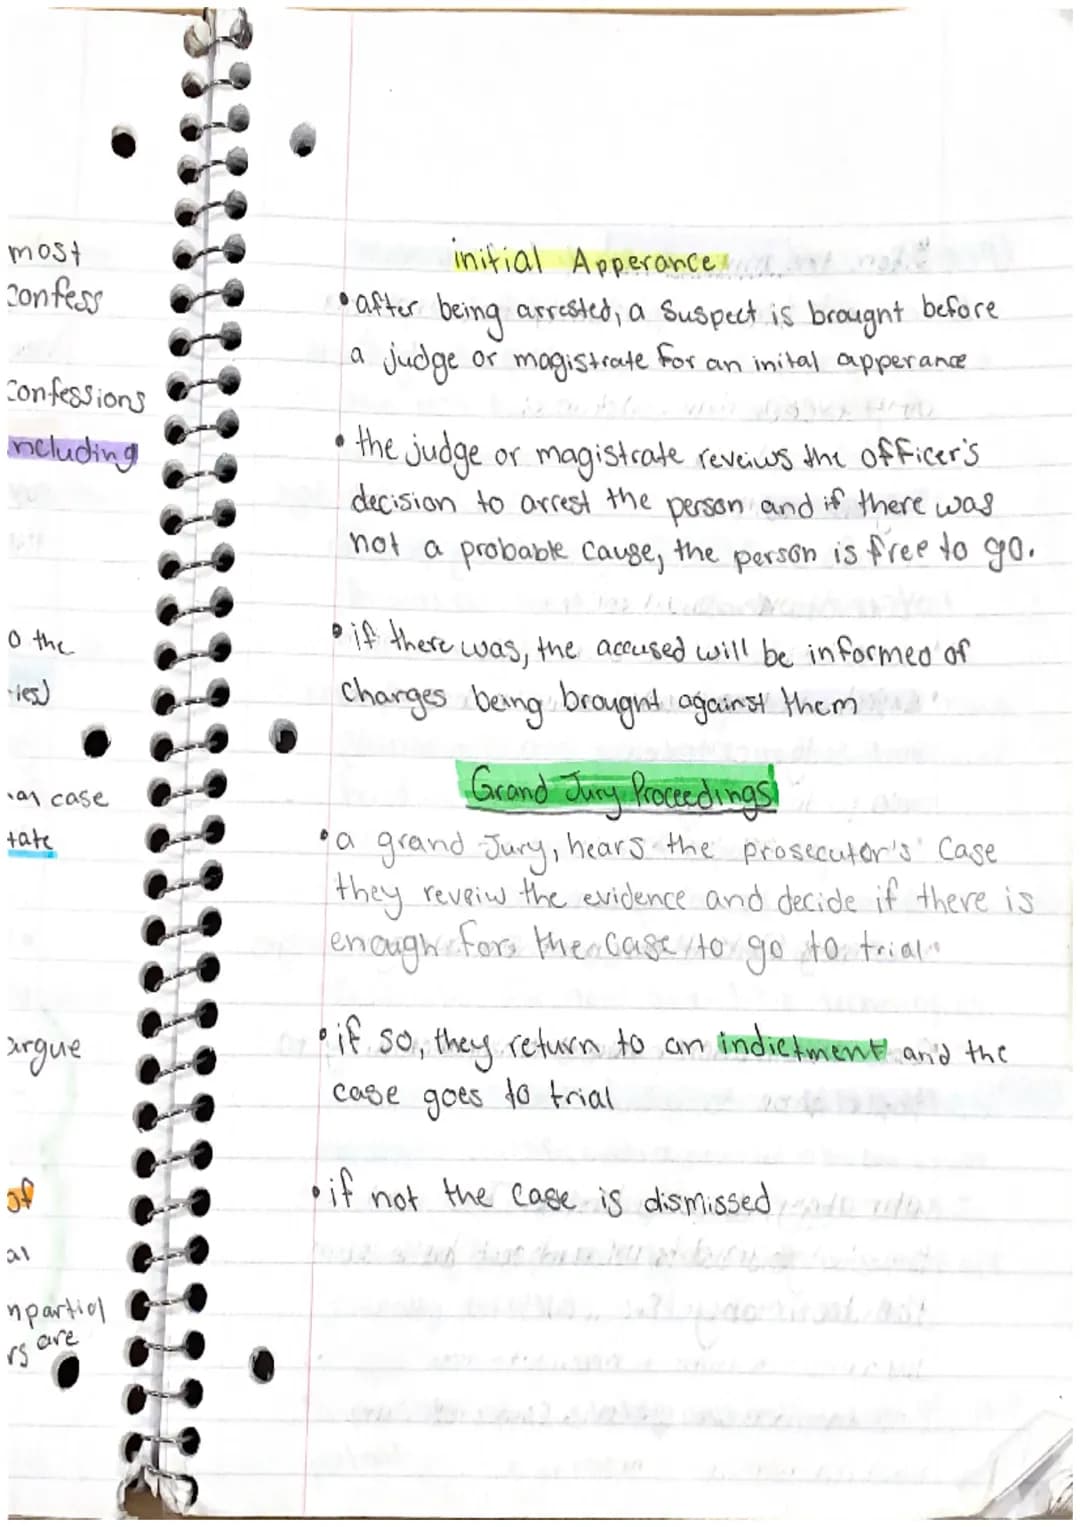 most
confess
confessions
ncluding
o the
ies)
case
tate
argue
of
al
npartial
rs are
initial Apperance
• after being arrested, a Suspect is brougnt before
a judge or magistrate for an inital apperance
• the judge or magistrate reveiws the officer's
decision to arrest the person and if there was
not a probable cause, the person is free to go.
• if there was, the accused will be informed of
charges being brougnt against them
Grand Jury Proceedings
• a grand Jury, hears the prosecutor's Case
they reveiw the evidence and decide if there is
enough for the Case to go to trial
• if so, they return to an indictment and the
case goes to trial
• if not the case is dismissed